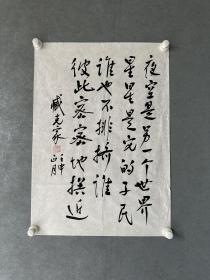 夜空是另一个世界
星星是它的子民
谁也不排挤谁
彼此密密地挨近
臧克家
壬申
正月